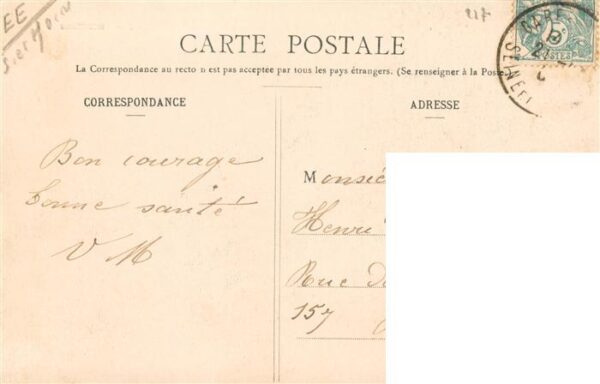 EE
217
CARTE POSTALE
La Correspondance au recto n est pas acceptee par tous les pays étrangers. (Se renseigner à la Poste
CORRESPONDANCE
ADRESSE
Bon courage
bonne santé
V M
Monsie
Henri
Rue de
157
GARE